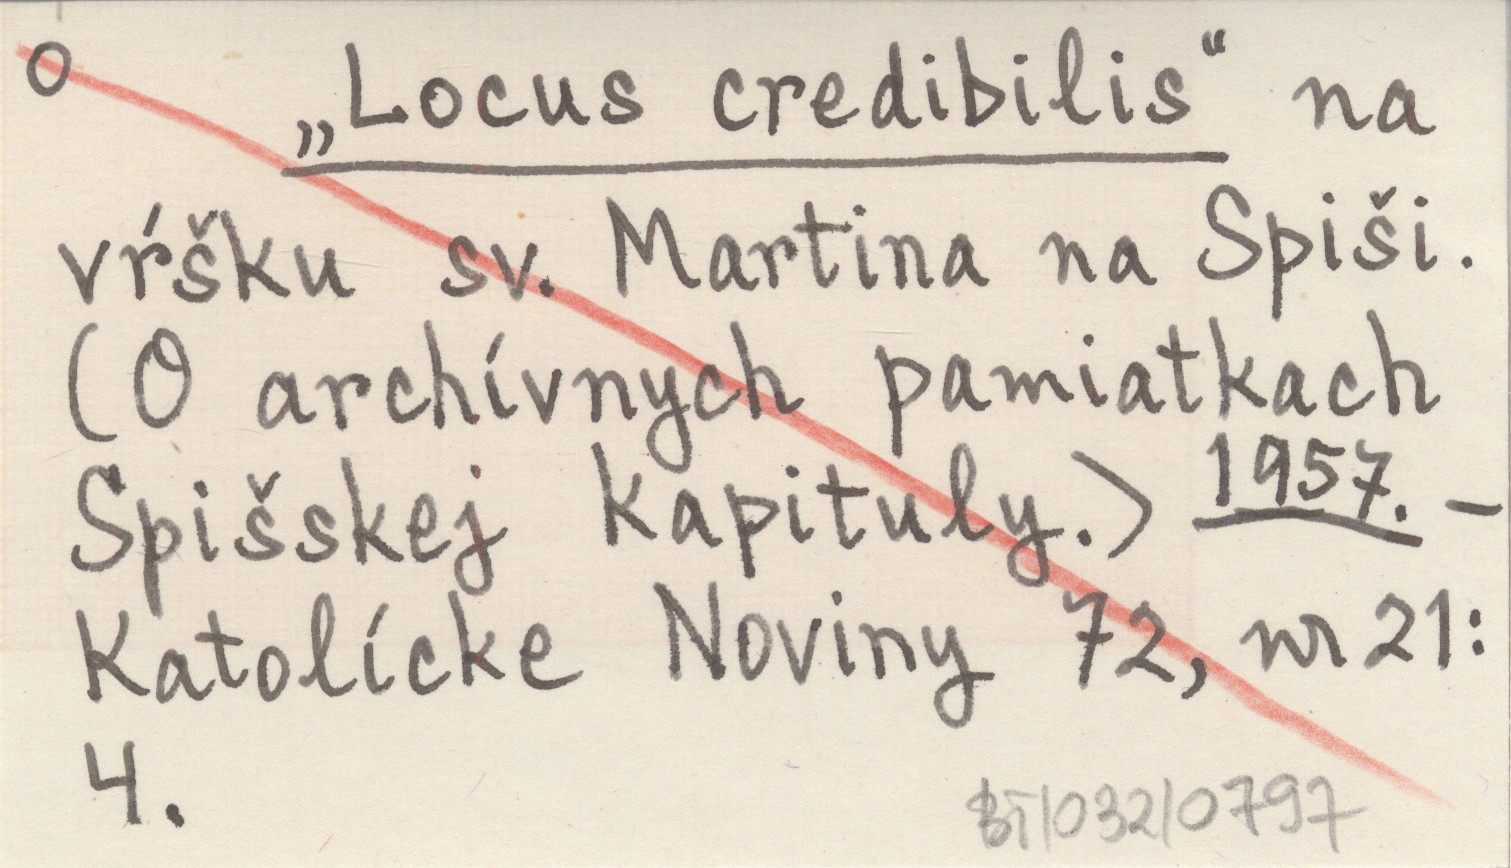 O „Locus credibilis“ na
vŕšku sv. Martina na Spiši.
(O archívnych pamiatkach
Spišskej Kapituly.) 1957. –
Katolícke Noviny 72, nr 21:
4.
BT/032/0797